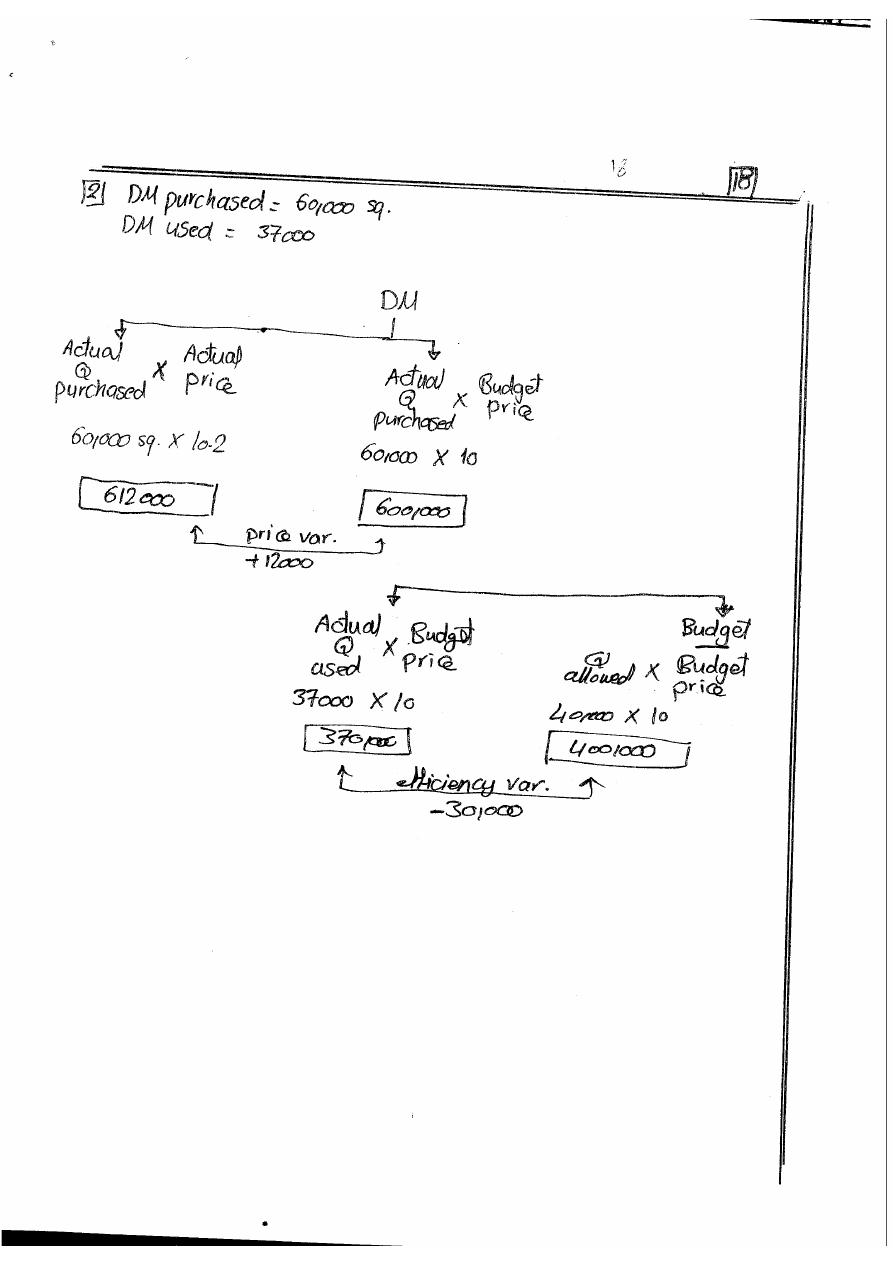 18
18
2 DM purchased = 60,000 sq.
DM used = 37000
DM
Actual Q purchased X Actual price
60,000 sq. X 10.2
612000
Actual Q purchased X Budget price
60,000 X 10
600,000
price var.
+12000
Actual Q used X Budget price
37000 X 10
370,000
Budget
Q allowed X Budget price
40,000 X 10
400,000
efficiency var.
-30,000